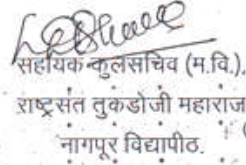 सहायक कुलसचिव (म.वि.),
राष्ट्रसंत तुकडोजी महाराज
नागपूर विद्यापीठ.